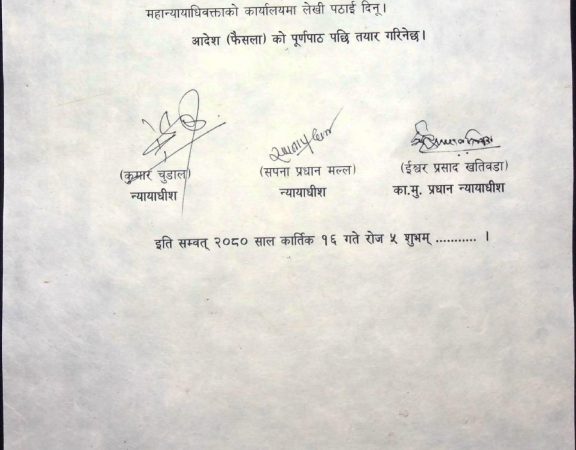 महान्यायाधिवक्ताको कार्यालयमा लेखी पठाई दिनू।
आदेश (फैसला) को पूर्णपाठ पछि तयार गरिनेछ।
(कुमार चुडाल)
न्यायाधीश
(सपना प्रधान मल्ल)
न्यायाधीश
(ईश्वर प्रसाद खतिवडा)
का.मु. प्रधान न्यायाधीश
इति सम्वत् २०८० साल कार्तिक १६ गते रोज ५ शुभम् ........... ।